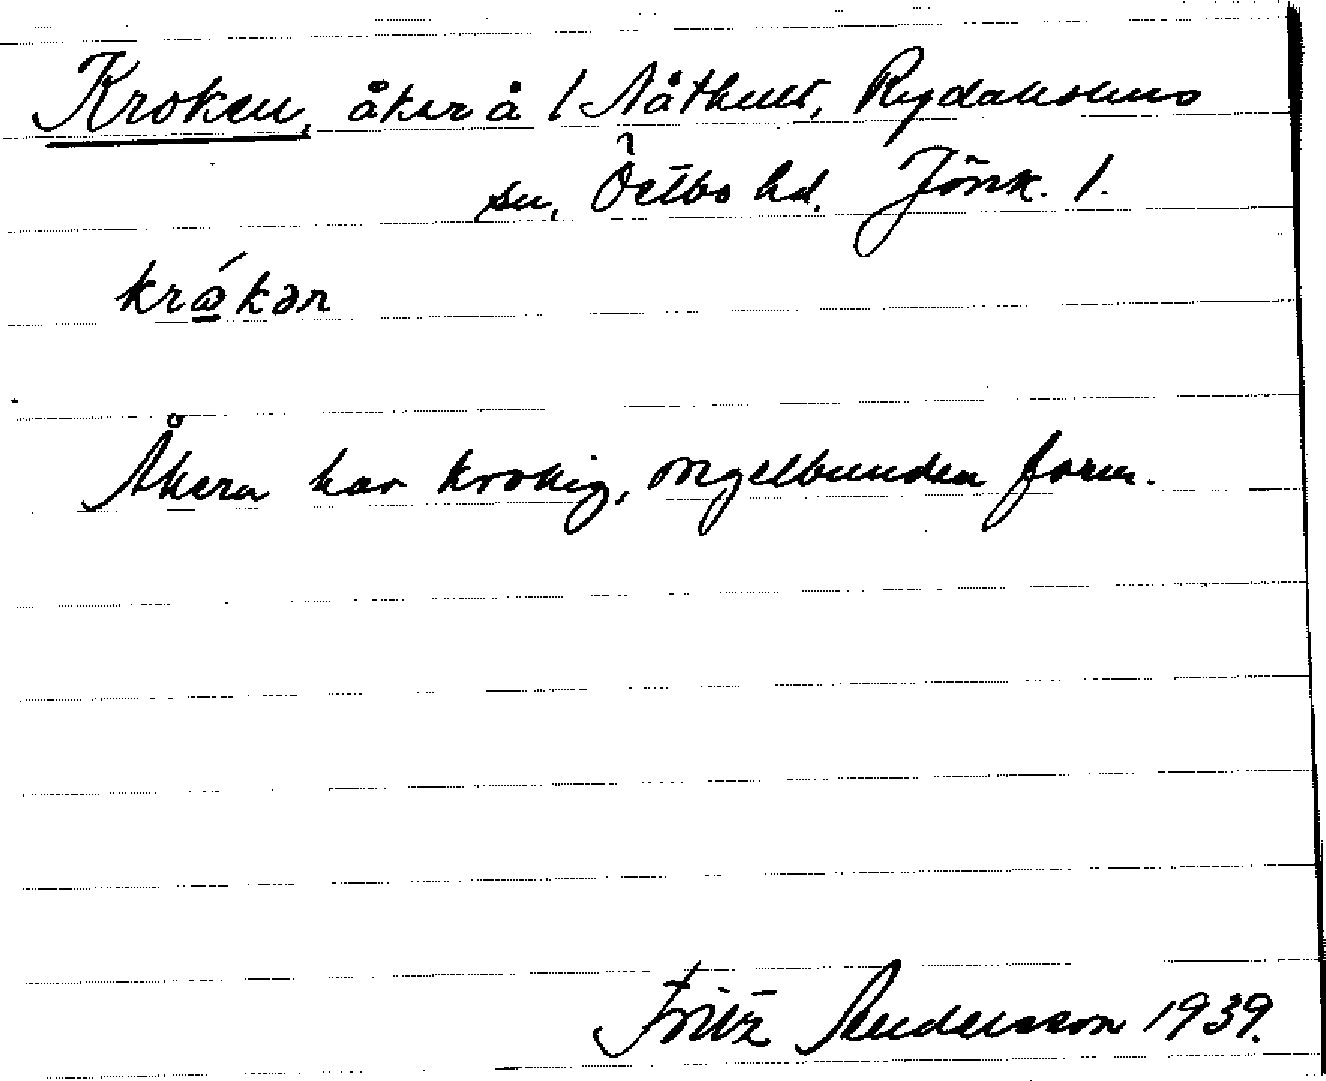 Kroken, åker å 1 Nåthult, Rydaholms
sn, Östbo hd. Jönk. l.
kråkən
Åkern har krokig, vingelbunden form.
Fritz Andersson 1939.